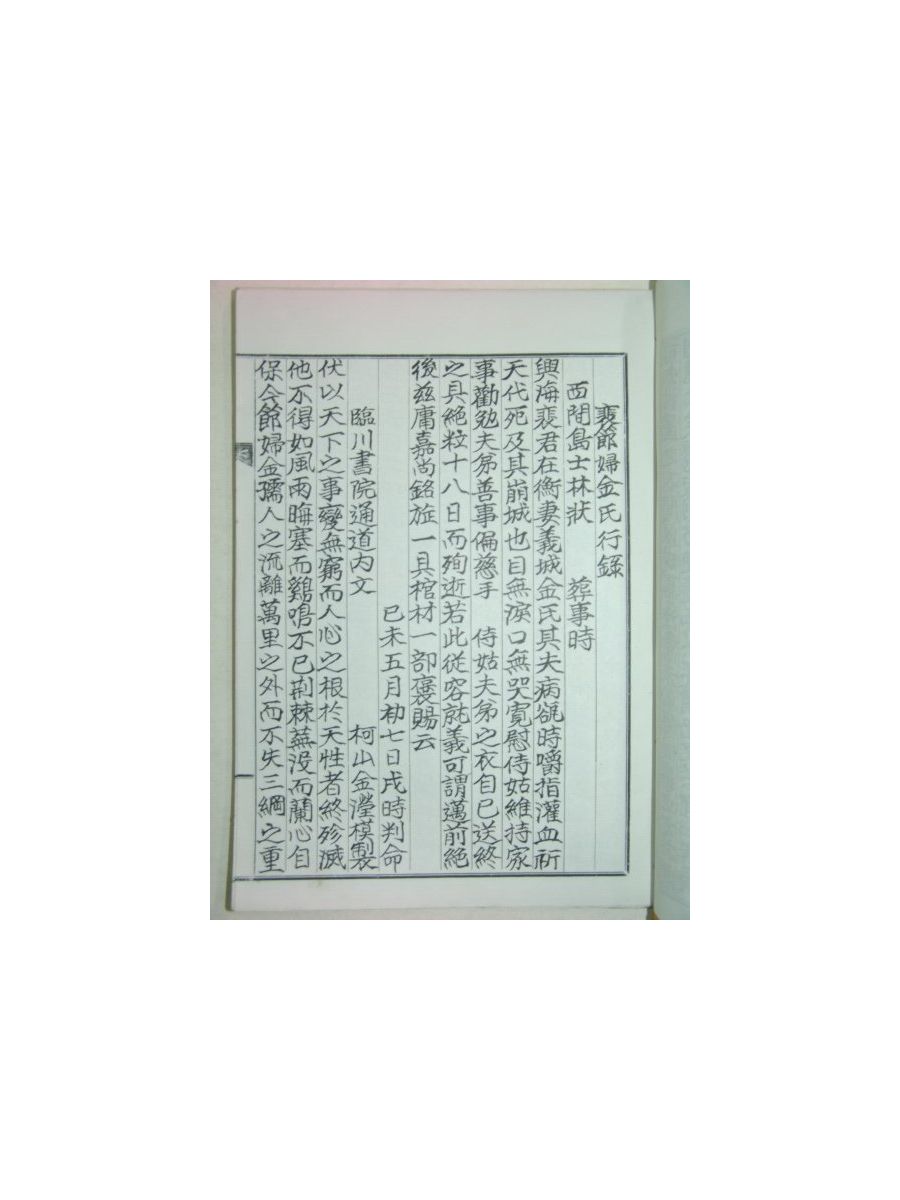 裵節婦金氏行錄
西間島士林狀 葬事時
興海裵君在衡妻義城金氏其夫病谻時嚼指灌血祈
天代死及其崩城也目無淚口無哭寬慰侍姑維持家
事勸勉夫弟善事偏慈手 侍姑夫弟之衣自已送終
之具絕粒十八日而殉逝若此從容就義可謂邁前絕
後玆庸嘉尙銘旌一具棺材一部褒賜云
已未五月初七日戌時判命
臨川書院通道內文 柯山金瀅模製
伏以天下之事變無窮而人心之根於天性者終殄滅
他不得如風雨晦塞而鷄鳴不已荊棘蕪沒而蘭心自
保今節婦金孺人之流離萬里之外而不失三綱之重